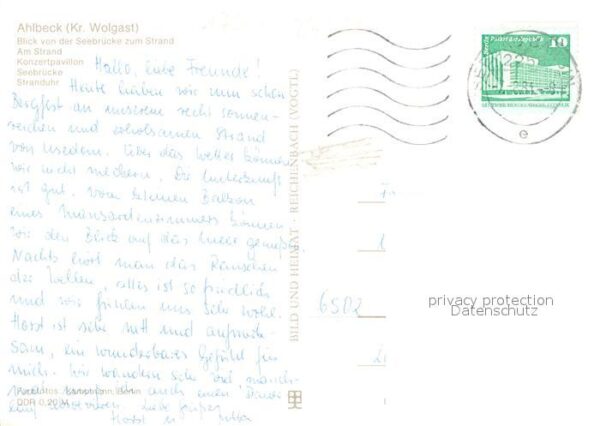 Ahlbeck (Kr. Wolgast)
Blick von der Seebrücke zum Strand
Am Strand
Konzertpavillon
Seebrücke
Stranduhr
Hallo, liebe Freunde!
Heute haben wir nun schon
Bergfest an unserem recht sonnen-
reichen und erholsamen Strand
von Usedom. Über das Wetter können
wir nicht meckern. Die Unterkunft
ist gut. Vom kleinen Balkon
eines Mansardenzimmers können
wir den Blick auf das Meer genießen.
Nachts hört man das Rauschen
der Wellen, alles ist so friedlich
und wir fühlen uns sehr wohl.
Horst ist sehr nett und aufmerk-
sam, ein wunderbares Gefühl für
mich. Wir wandern sehr viel, manch-
auch einen
Liebe Grüße
Horst u.
DDR 0,20 M
BILD UND HEIMAT · REICHENBACH (VOGTL)
10
6502
privacy protection
Datenschutz